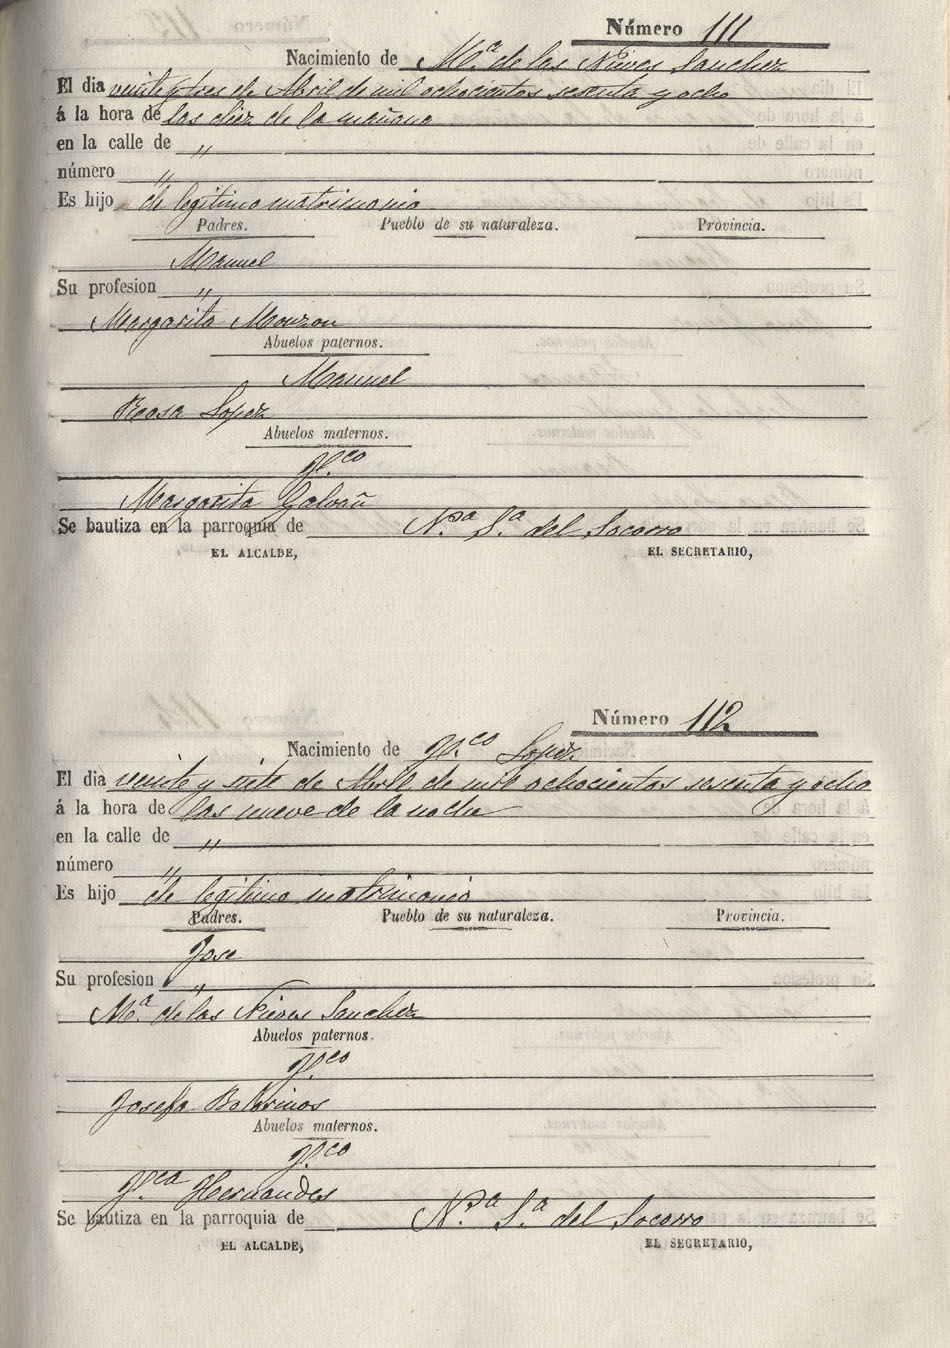 Número 111
Nacimiento de Mª de las Nieves Sanchez
El dia veinte y tres de Abril de mil ochocientos sesenta y ocho
á la hora de las diez de la mañana
en la calle de "
número "
Es hijo de legitimo matrimonio
Padres. Pueblo de su naturaleza. Provincia.
Manuel
Su profesion "
Margarita Monzon
Abuelos paternos.
Manuel
Rosa Lopez
Abuelos maternos.
Fco
Margarita Galvañ
Se bautiza en la parroquia de Nra Sa del Socorro
EL ALCALDE, EL SECRETARIO,
Número 112
Nacimiento de Fco Lopez
El dia veinte y siete de Abril de mil ochocientos sesenta y ocho
á la hora de las nueve de la noche
en la calle de "
número "
Es hijo de legitimo matrimonio
Padres. Pueblo de su naturaleza. Provincia.
Jose
Su profesion "
Mª de las Nieves Sanchez
Abuelos paternos.
Fco
Josefa
Abuelos maternos.
Fco
Fca Hernandes
Se bautiza en la parroquia de Nra Sa del Socorro
EL ALCALDE, EL SECRETARIO,